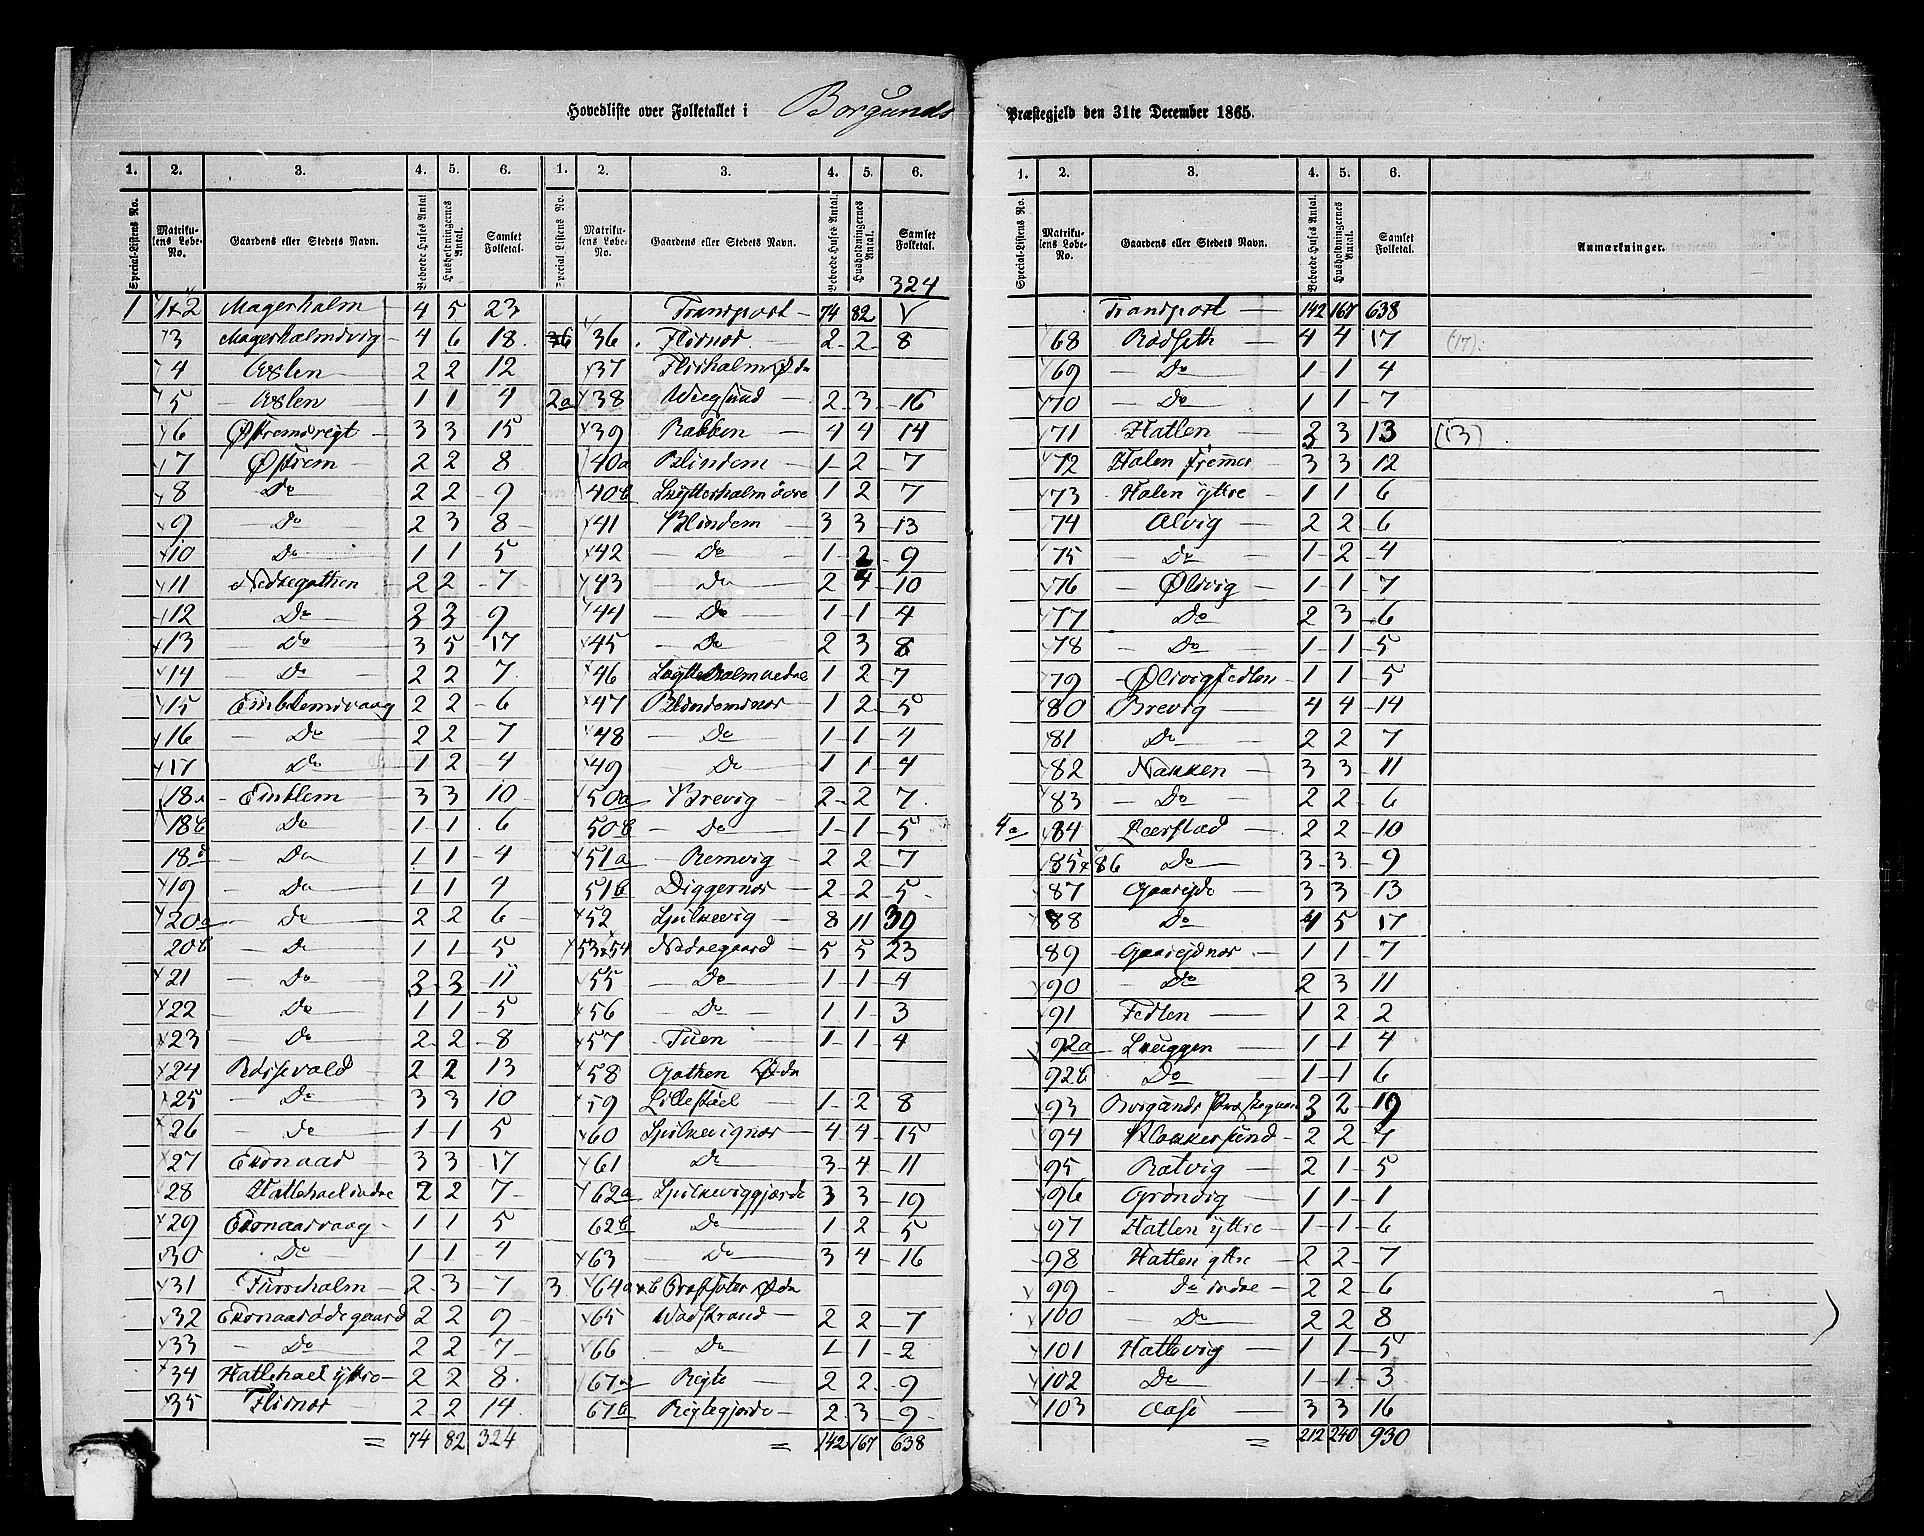 Hovedliste over Folketallet i Borgunds Præstegjeld den 31te December 1865.
1. 2. 3. 4. 5. 6. 1. 2. 3. 4. 5. 6.
Special-Listens No. Matrikulens Løbe-No. Gaardens eller Stedets Navn. Beboede Huses Antal. Husholdningernes Antal. Samlet Folketal. Special-Listens No. Matrikulens Løbe-No. Gaardens eller Stedets Navn. Beboede Huses Antal. Husholdningernes Antal. Samlet Folketal.
324
1 1&2 Magerholm 4 5 23
3 Magerholmsvig 4 6 18
4 Aslen 2 2 12
5 Aslen 1 1 4
6 Østremsvegt 3 3 15
7 Østrem 2 2 8
8 Do 2 2 9
9 Do 2 3 8
10 Do 1 1 5
11 Nedregotten 2 2 7
12 Do 3 3 9
13 Do 3 5 17
14 Do 2 2 7
15 Emblemsvaag 2 2 6
16 Do 2 2 7
17 Do 1 2 4
18a Emblem 3 3 10
18b Do 1 1 6
18c Do 1 1 4
19 Do 1 1 4
20a Do 2 2 6
20b Do 1 1 5
21 Do 3 3 11
22 Do 1 1 5
23 Do 2 2 8
24 Røssevold 2 2 13
25 Do 3 3 10
26 do 1 1 5
27 Eidnaad 3 3 17
28 Hatlehael indre 2 2 7
29 Eidnaasvaag 1 1 5
30 Do 1 1 4
31 Tusseholm 2 3 7
32 Eidnaasødegaard 2 2 9
33 Do 2 2 7
34 Hatlehael yttre 2 2 8
35 Flisnes 2 2 14
= 74 82 324
Transport 74 82
36 Flisnes 2 2 8
37 Flisholm Øde
2a 38 Veegsund 2 3 16
39 Rabben 4 4 14
40a Blindem 1 2 7
40b Lytterholm øvre 1 2 7
41 Blindem 3 3 13
42 Do 1 2 9
43 Do 2 4 10
44 Do 1 1 4
45 Do 2 3 8
46 Lytterholm nedre 1 2 7
47 Blindemsnes 1 2 5
48 Do 1 1 4
49 Do 1 1 4
50a Brevig 2 2 7
50b Do 1 1 5
51a Remvig 2 2 7
51b Diggernes 2 2 5
52 Spilkevig 8 11 30
53&54 Nedregaard 5 5 23
55 Do 1 1 4
56 Do 1 1 3
57 Tuen 1 1 4
58 Gotten Øde
59 Lillestøel 1 2 8
60 Spilkevignes 4 4 15
61 Do 3 4 11
62a Spilkeviggjerde 3 3 19
62b Do 1 2 5
63 Do 3 4 16
3 64a&b Øde
65 Vadstrand 2 2 7
66 Do 1 1 2
67a Regte 2 2 9
67b Regtegjerde 2 3 9
= 142 167 638
1. 2. 3. 4. 5. 6.
Special-Listens No. Matrikulens Løbe-No. Gaardens eller Stedets Navn. Beboede Huses Antal. Husholdningernes Antal. Samlet Folketal. Anmærkninger.
Transport 142 167 638
68 Rødseth 4 4 17 (17).
69 Do 1 1 4
70 Do 1 1 7
71 Hatlen 3 3 13 (13)
72 Holen fremre 3 3 12
73 Holen yttre 1 1 6
74 Alvig 2 2 6
75 Do 1 2 4
76 Ølsvig 1 1 7
77 Do 2 3 6
78 Do 1 1 5
79 Ølsvigsedlen 1 1 5
80 Brevig 4 4 14
81 Do 2 2 7
82 Nakken 3 3 11
83 Do 2 2 6
4a 84 Leerstad 2 2 10
85&86 Do 3 3 9
87 Gaaseide 3 3 13
88 Do 4 5 17
89 Gaaseidnes 1 1 7
90 Do 2 3 11
91 Fedlen 1 2 2
92a Skuggen 1 1 4
92b Do 1 1 6
93 Borgunds Præstegaard 3 2 19
94 Klokkersund 2 2 7
95 Ratvig 2 1 5
96 Grønvig 1 1 1
97 Hatlen yttre 1 1 6
98 Hatlen yttre 2 2 7
99 do indre 2 2 6
100 Do 2 2 8
101 Hatlevig 1 1 5
102 Do 1 1 3
103 Aase 3 3 16
= 212 240 930